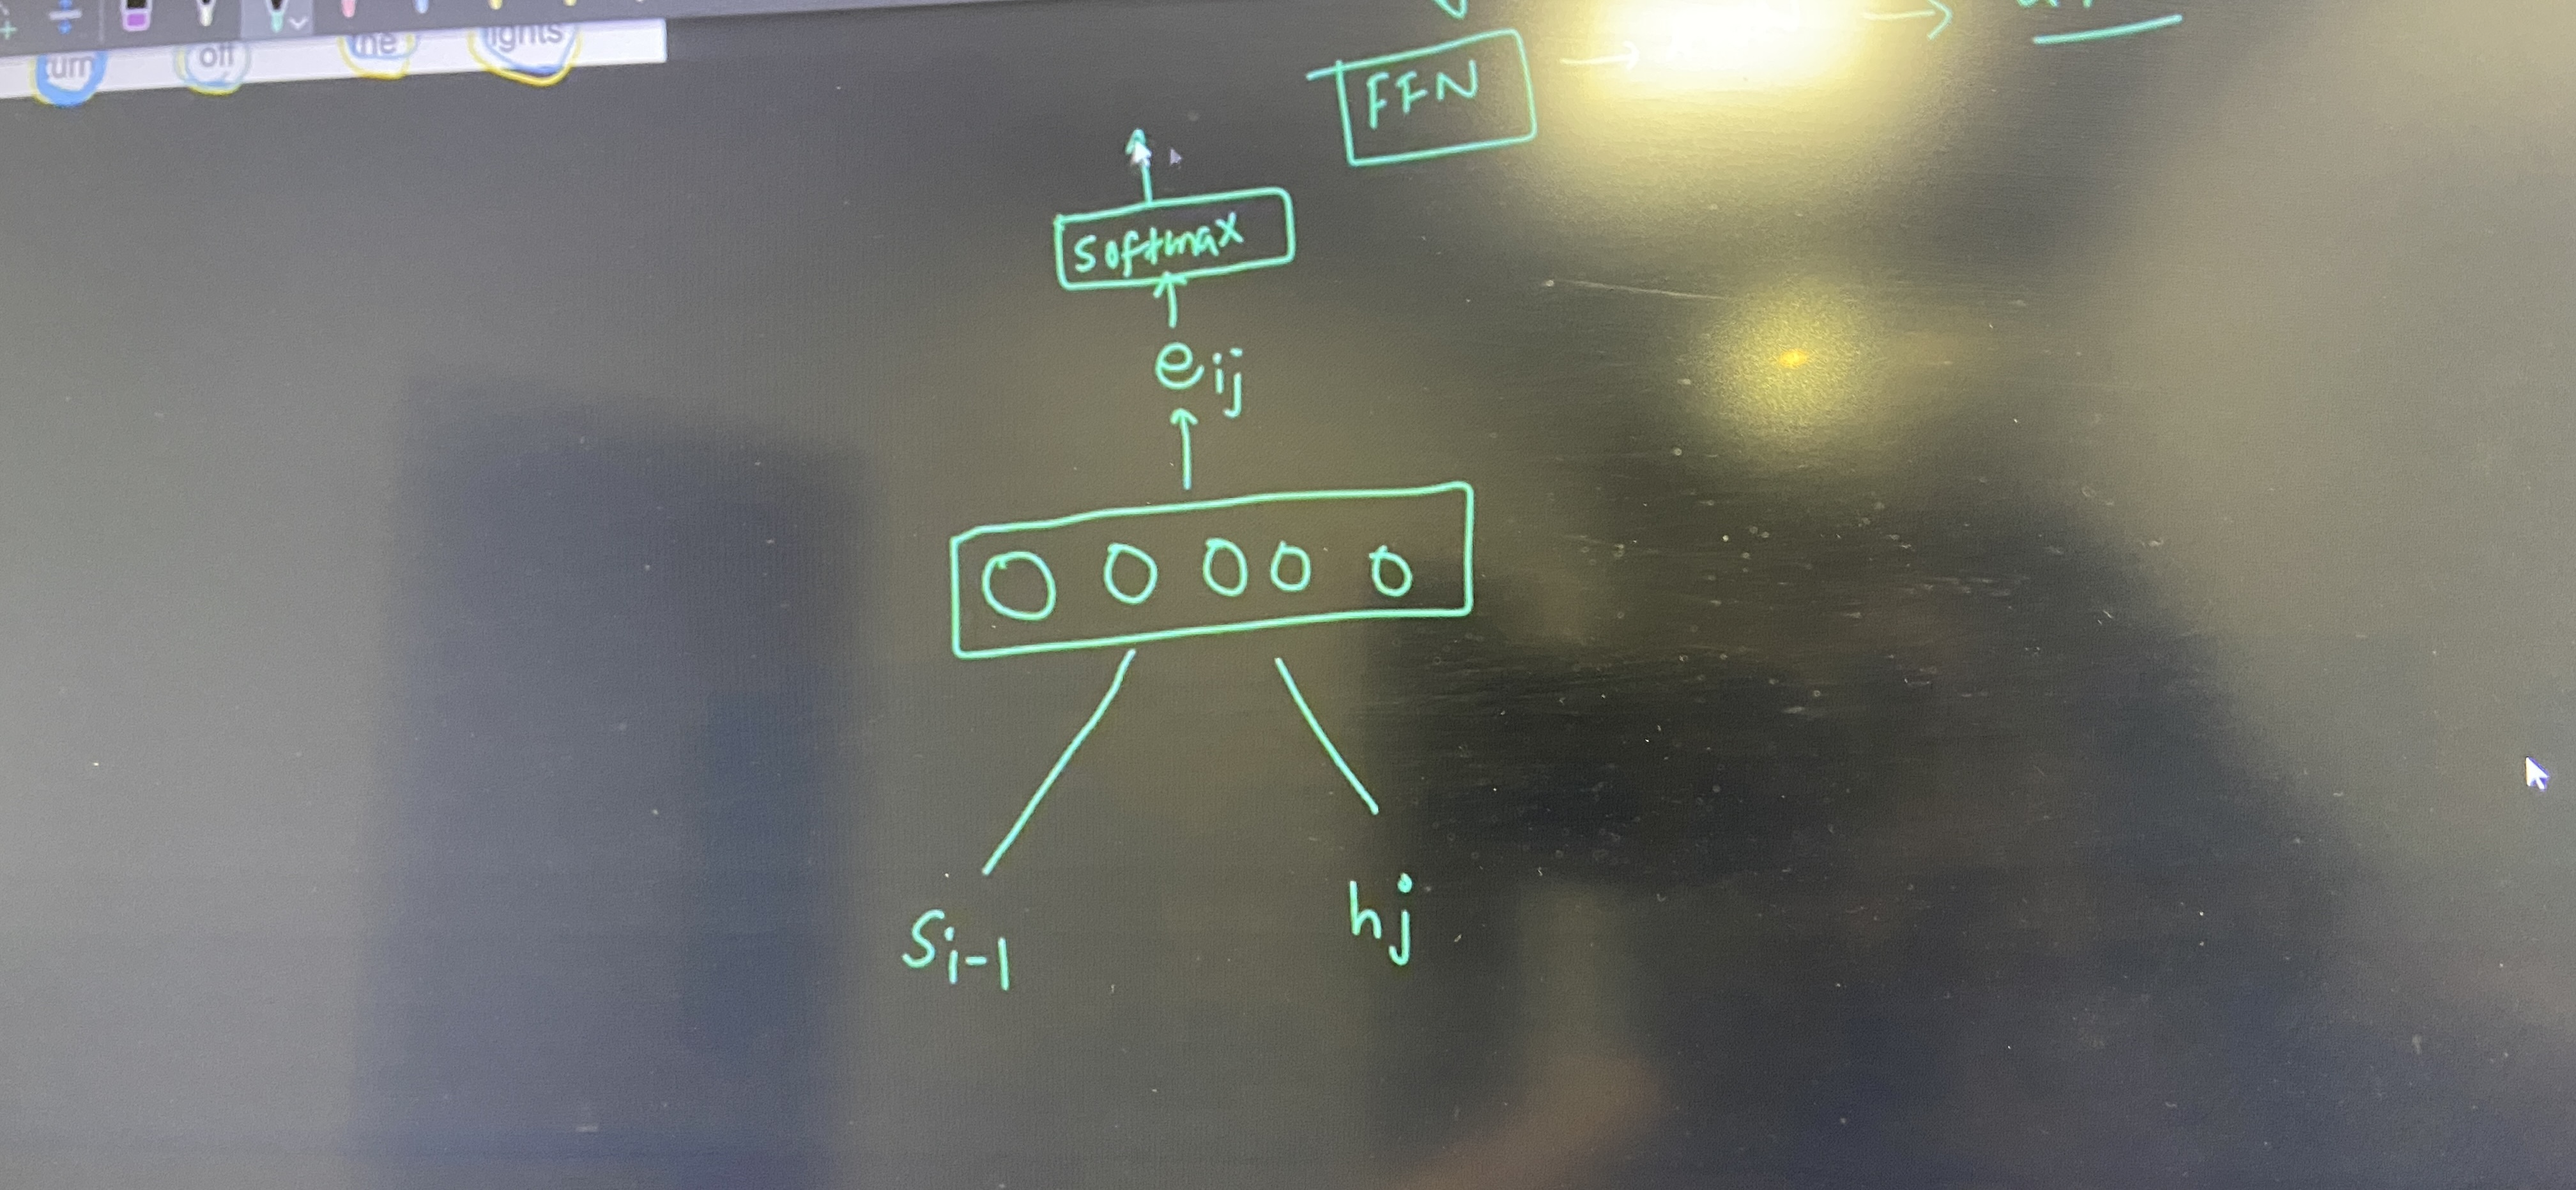 turn off the lights
FFN
softmax
eij
Si-1
hj